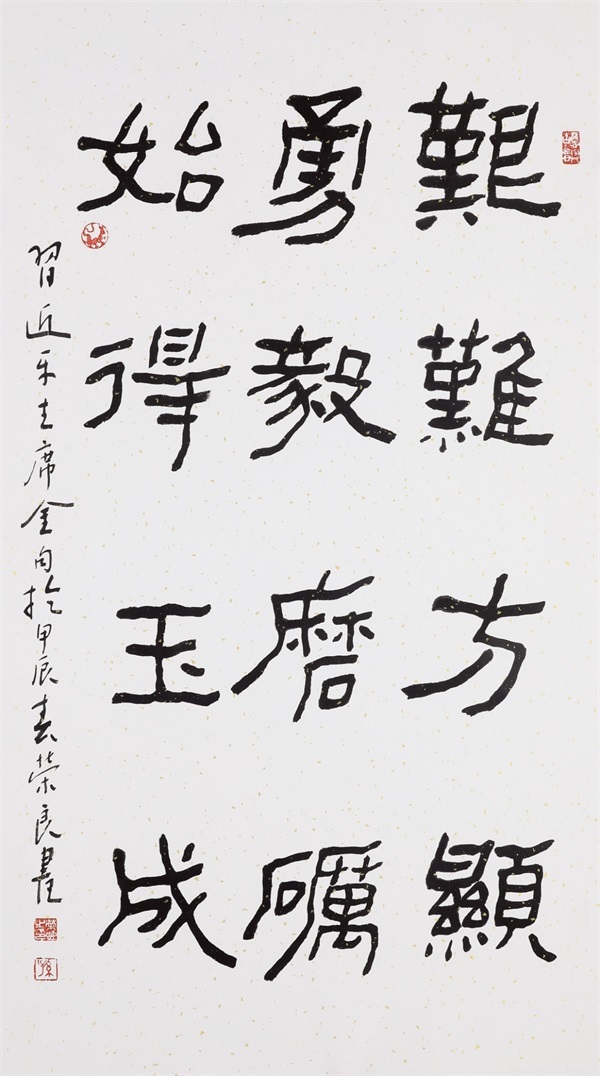 艱難方顯
勇毅磨礪
始得玉成
習近平主席金句於甲辰春荣良書